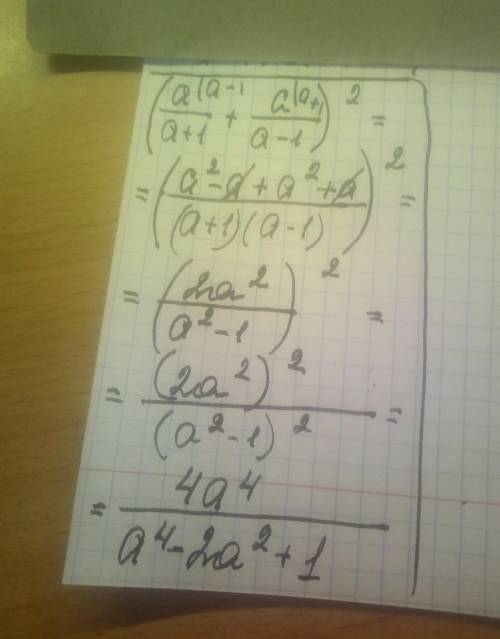 (a|a-1/a+1 + a|a+1/a-1)² =
= (a²-a+a²+a/(a+1)(a-1))² =
= (2a²/a²-1)² =
= (2a²)²/(a²-1)² =
= 4a⁴/a⁴-2a²+1